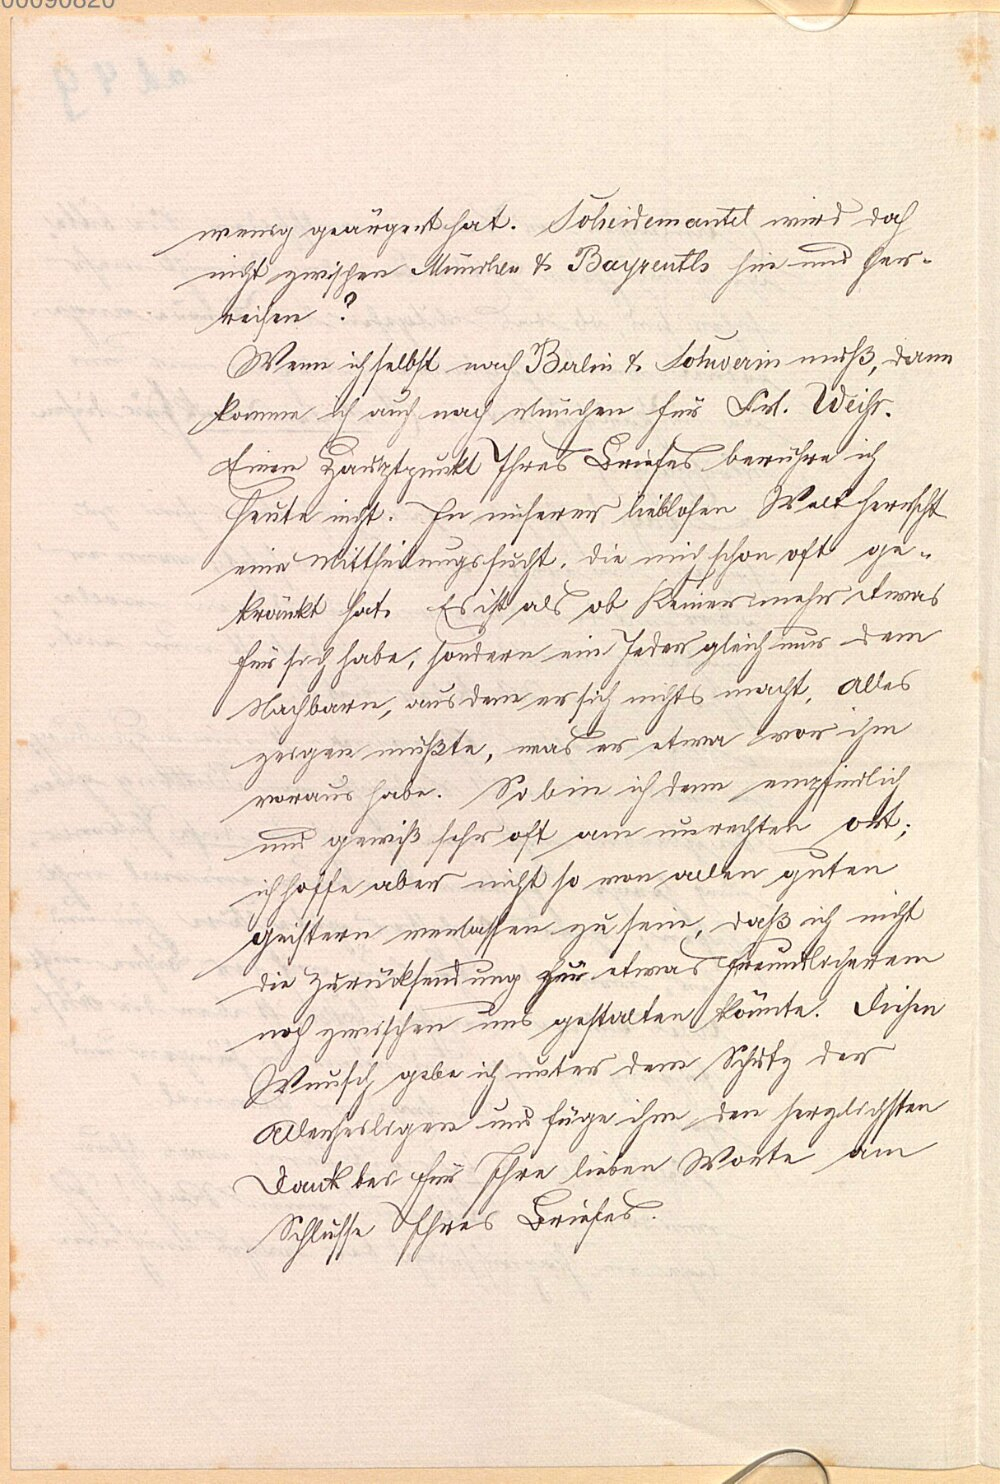 00090820
wenig geärgert hat. Scheidemantel wird doch
nicht zwischen München & Bayreuth hin und her-
reisen?
Wenn ich selbst nach Berlin & Schwerin muß, dann
komme ich auch nach München für Frl. Weihr.
Einen Hauptpunkt Ihres Briefes berühre ich
heute nicht. In unserer lieblosen Welt herrscht
eine Mittheilungssucht, die mich schon oft ge-
kränkt hat. Es ist als ob Keiner mehr etwas
für sich habe, sondern ein Jeder gleich nur dem
Nachbarn, aus dem er sich nichts macht, Alles
zeigen müßte, was er etwa vor ihm
voraus habe. So bin ich denn empfindlich
und gewiß sehr oft am unrechten Ort;
ich hoffe aber nicht so von allen guten
Geistern verlassen zu sein, daß ich nicht
die Zurücksendung zu etwas Freundlicherem
noch zwischen uns gestalten könnte. Diesen
Wunsch gebe ich unter dem Schutz der
Allerheiligen und füge ihm den herzlichsten
Dank bei für Ihre lieben Worte am
Schlusse Ihres Briefes.